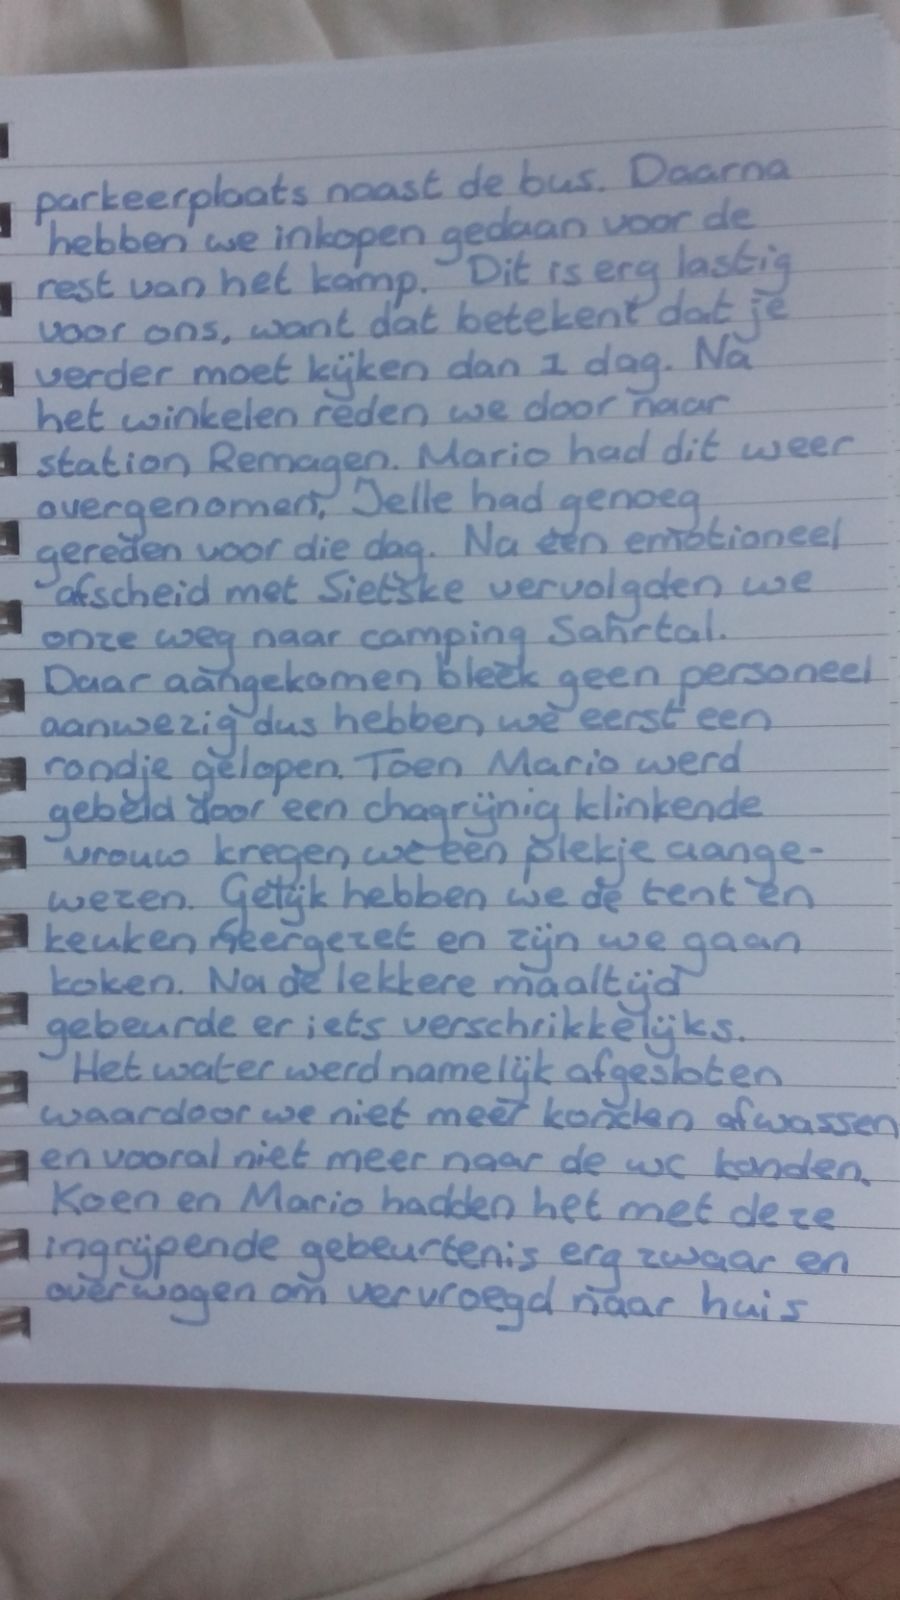 parkeerplaats naast de bus. Daarna
hebben we inkopen gedaan voor de
rest van het kamp. Dit is erg lastig
voor ons, want dat betekent dat je
verder moet kijken dan 1 dag. Na
het winkelen reden we door naar
station Remagen. Mario had dit weer
overgenomen, Jelle had genoeg
gereden voor die dag. Na een emotioneel
afscheid met Sietske vervolgden we
onze weg naar camping Sahrtal.
Daar aangekomen bleek geen personeel
aanwezig dus hebben we eerst een
rondje gelopen. Toen Mario werd
gebeld door een chagrijnig klinkende
vrouw kregen we een plekje aange-
wezen. Gelijk hebben we de tent en
keuken neergezet en zijn we gaan
koken. Na de lekkere maaltijd
gebeurde er iets verschrikkelijks.
Het water werd namelijk afgesloten
waardoor we niet meer konden afwassen
en vooral niet meer naar de wc konden.
Koen en Mario hadden het met deze
ingrijpende gebeurtenis erg zwaar en
overwogen om vervroegd naar huis